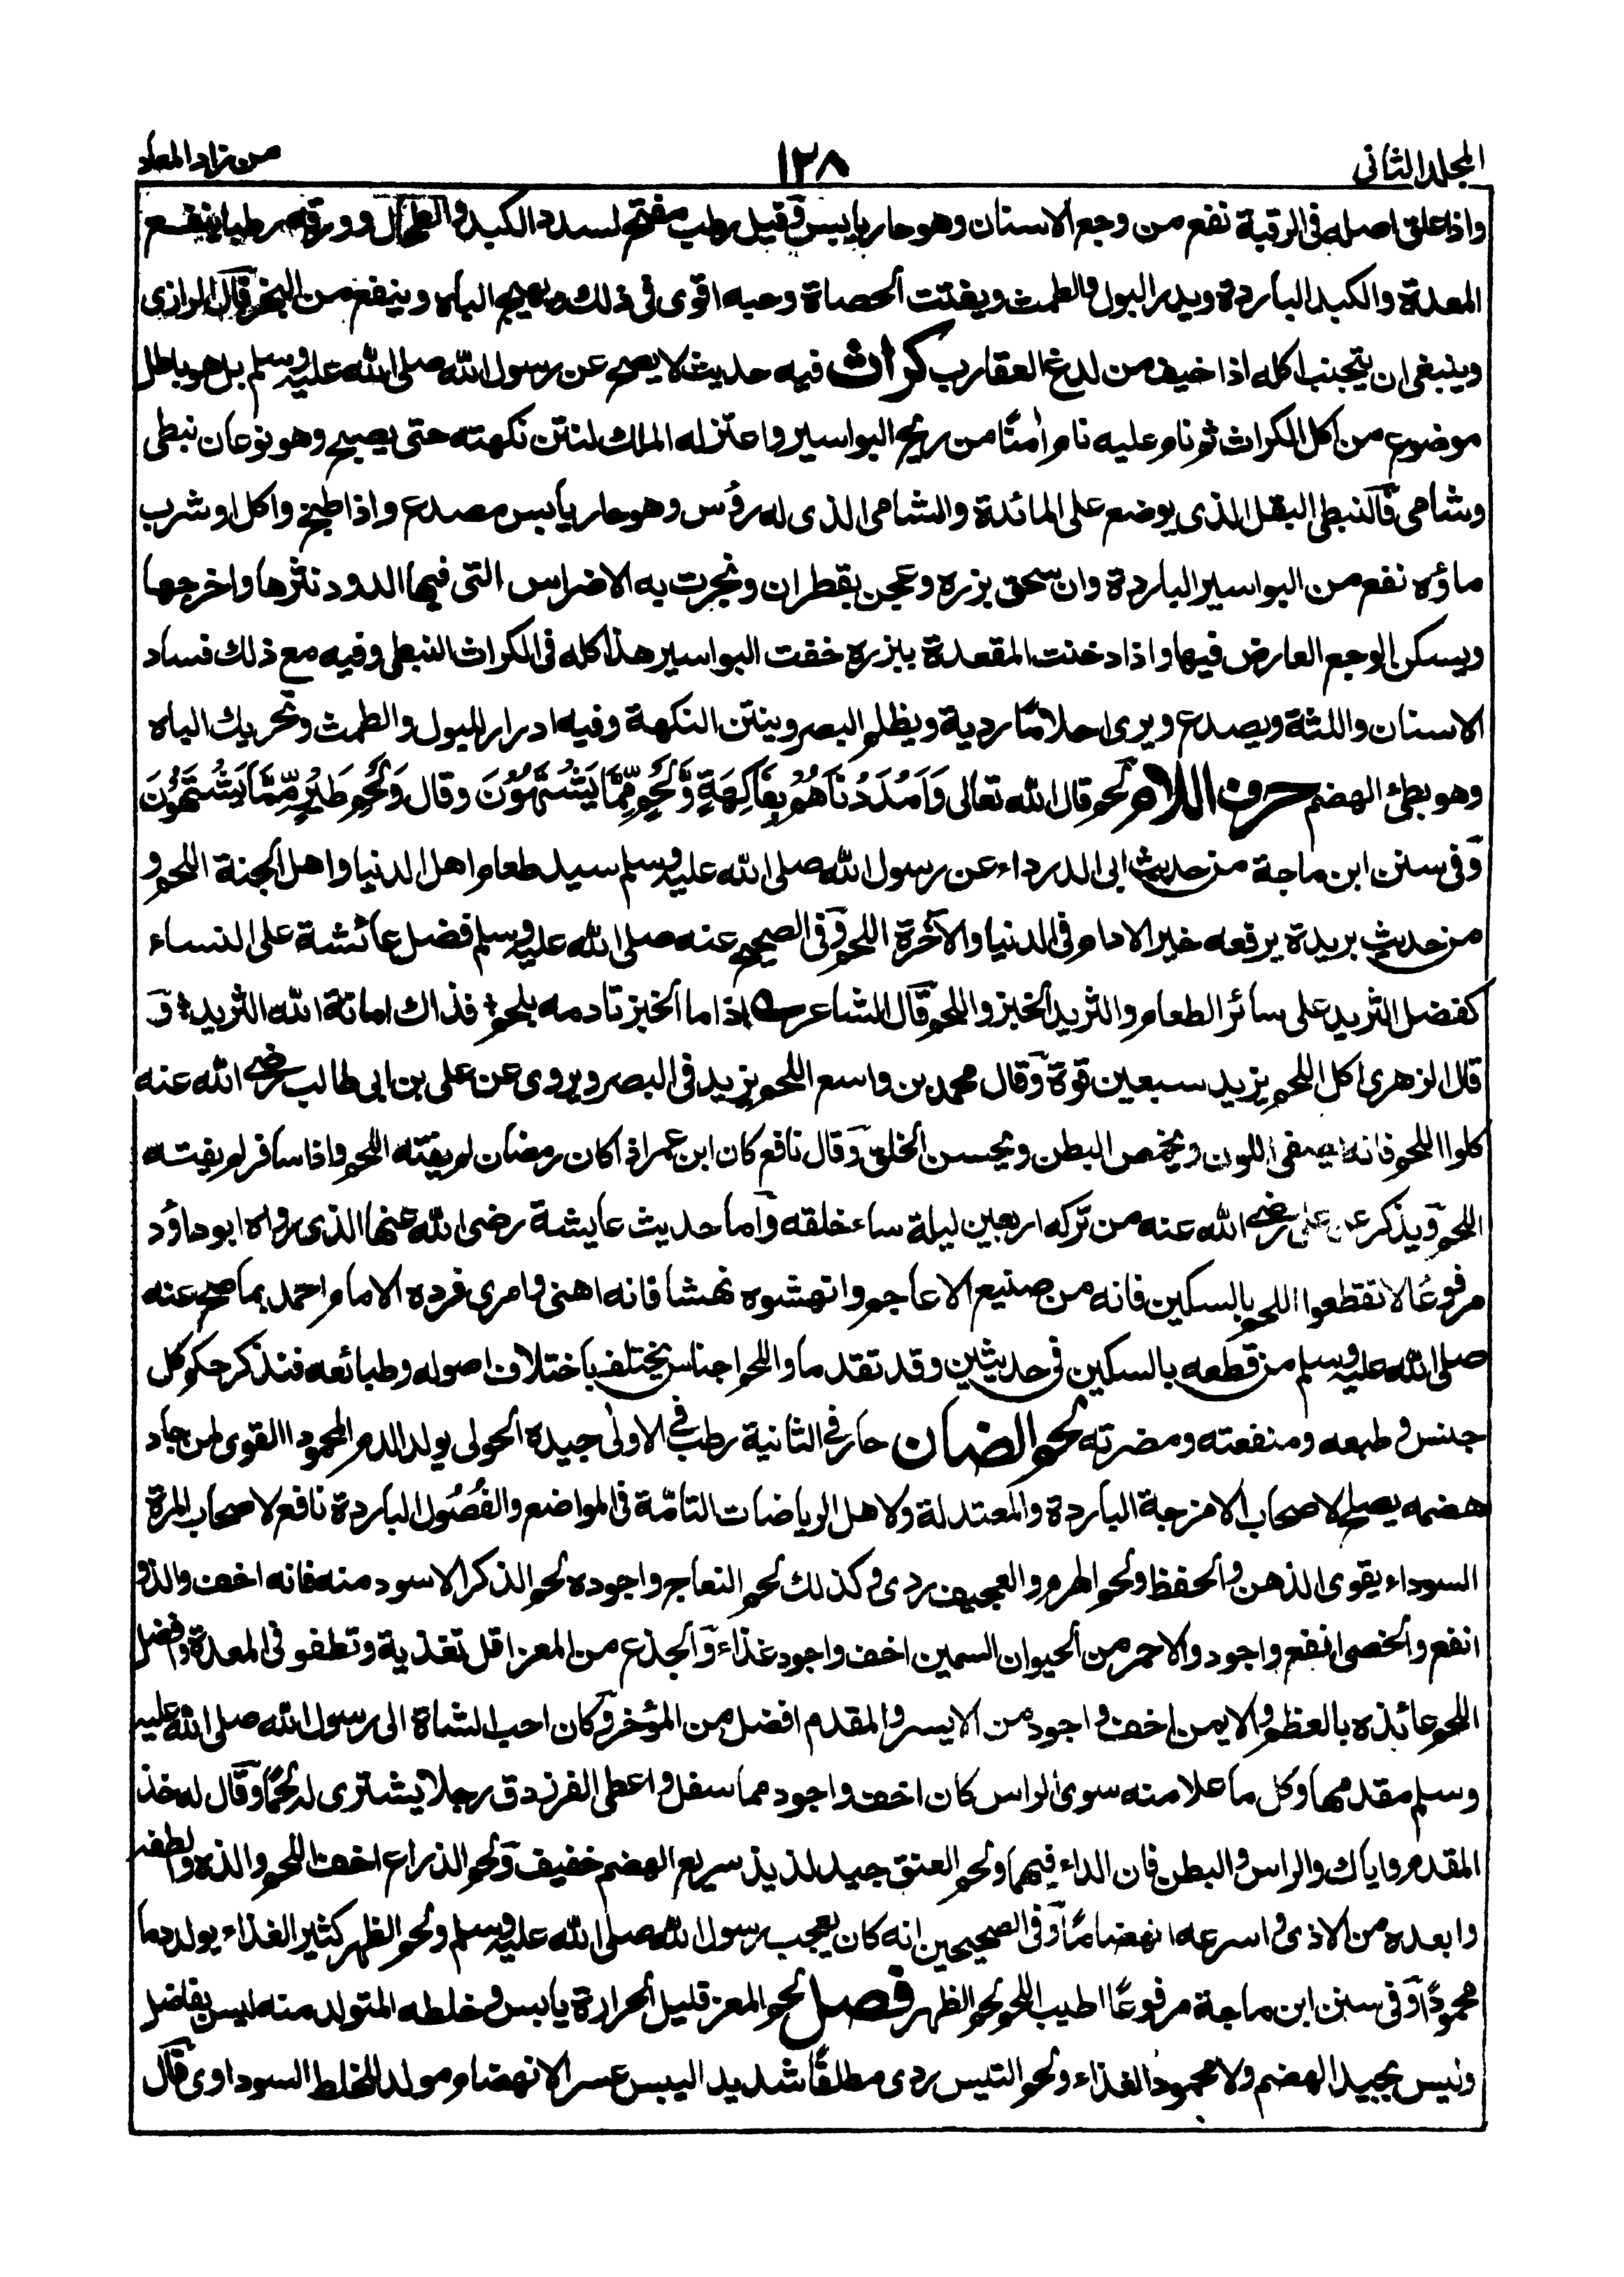 المجلد الثانى
١٢٨
من زاد المعاد
واذا علق اصله فى الرقبة نفع من وجع الاسنان وهو حار يابس وقيل رطب مفتح لسدد الكبد والطحال وورقه رطبا ينفع
المعدة والكبد الباردة ويدر البول والطمث ويفتت الحصاة وحبه اقوى فى ذلك ويهيج الباه وينفع من البخر قال الرازى
وينبغى ان يتجنب اكله اذا خيف من لدغ العقارب كراث فيه حديث لا يصح عن رسول الله صلى الله عليه وسلم بل هو باطل
موضوع من اكل الكراث ثم نام عليه نام اٰمنًا من ريح البواسير واعتزله الملك لنتن نكهته حتى يصبح وهو نوعان نبطى
وشامى فالنبطى البقل الذى يوضع على المائدة والشامى الذى له رؤس وهو حار يابس مصدع واذا طبخ واكل او شرب
ماؤه نفع من البواسير الباردة وان سحق بزره وعجن بقطران وبخرت به الاضراس التى فيها الدود نثرها واخرجها
ويسكن الوجع العارض فيها واذا دخنت المقعدة ببزره خفت البواسير هذا كله فى الكراث النبطى وفيه مع ذلك فساد
الاسنان واللثة ويصدع ويرى احلامًا ردية ويظلم البصر وينتن النكهة وفيه ادرار للبول والطمث وتحريك الباه
وهو بطئ الهضم حرف اللام لحم قال الله تعالى وَاَمْدَدْنَاهُمْ بِفَاكِهَةٍ وَّلَحْمٍ مِّمَّا يَشْتَهُوْنَ وقال وَلَحْمِ طَيْرٍ مِّمَّا يَشْتَهُوْنَ
وفى سنن ابن ماجة من حديث ابى الدرداء عن رسول الله صلى الله عليه وسلم سيد طعام اهل الدنيا واهل الجنة اللحم و
من حديث بريدة يرفعه خير الادام فى الدنيا والآخرة اللحم وفى الصحيح عنه صلى الله عليه وسلم فضل عائشة على النساء
كفضل الثريد على سائر الطعام والثريد الخبز واللحم قال الشاعر اذا ما الخبز تادمه بلحم فذاك امانة الله الثريد و
قال الزهرى اكل اللحم يزيد سبعين قوة وقال محمد بن واسع اللحم يزيد فى البصر ويروى عن على بن ابى طالب رضى الله عنه
كلوا اللحم فانه يصفى اللون ويخمص البطن ويحسن الخلق وقال نافع كان ابن عمر اذا كان رمضان لم يفته اللحم واذا سافر لم يفته
اللحم ويذكر عن على رضى الله عنه من تركه اربعين ليلة ساء خلقه واما حديث عايشة رضى الله عنها الذى رواه ابو داؤد
مرفوعًا لا تقطعوا اللحم بالسكين فانه من صنيع الاعاجم وانهشوه نهشا فانه اهنى وامرى فرده الامام احمد بما صح عنه
صلى الله عليه وسلم من قطعه بالسكين فى حديثين وقد تقدما واللحم اجناس يختلف باختلاف اصوله وطبائعه فنذكر حكم كل
جنس وطبعه ومنفعته ومضرته لحم الضان حار فى الثانية رطب فى الاولىٰ جيده الحولى يولد الدم المحمود القوى لمن جاد
هضمه يصلح لاصحاب الامزجة الباردة والمعتدلة ولاهل الرياضات التامّة فى المواضع والفُصُول الباردة نافع لاصحاب المرة
السوداء يقوى الذهن والحفظ ولحم الهرم والعجيف ردى وكذلك لحم النعاج واجوده لحم الذكر الاسود منه فانه اخف والذو
انفع والخصى انفع واجود والاحمر من الحيوان السمين اخف واجود غذاء والجذع من المعز اقل تغذية وتطفو فى المعدة وافضل
اللحم عائذه بالعظم والايمن اخف واجود من الايسر والمقدم افضل من المؤخر وكان احب الشاة الى رسول الله صلى الله عليه
وسلم مقدمها وكل ما علا منه سوى الراس كان اخف واجود مما سفل واعطى الفرزدق رجلا يشترى له لحمًا وقال له خذ
المقدم واياك والراس والبطن فان الداء فيهما ولحم العنق جيد لذيذ سريع الهضم خفيف ولحم الذراع اخف اللحم والذه والطفه
وابعده من الاذى واسرعه انهضامًا وفى الصحيحين انه كان يعجب رسول الله صلى الله عليه وسلم ولحم الظهر كثير الغذاء يولد دما
محمودًا وفى سنن ابن ماجة مرفوعًا اطيب اللحم لحم الظهر فصل لحم المعز قليل الحرارة يابس وخلطه المتولد منه ليس بفاضل
وليس بجيد الهضم ولا محمود الغذاء ولحم التيس ردى مطلقًا شديد اليبس عسر الانهضام مولد للخلط السوداوى قال